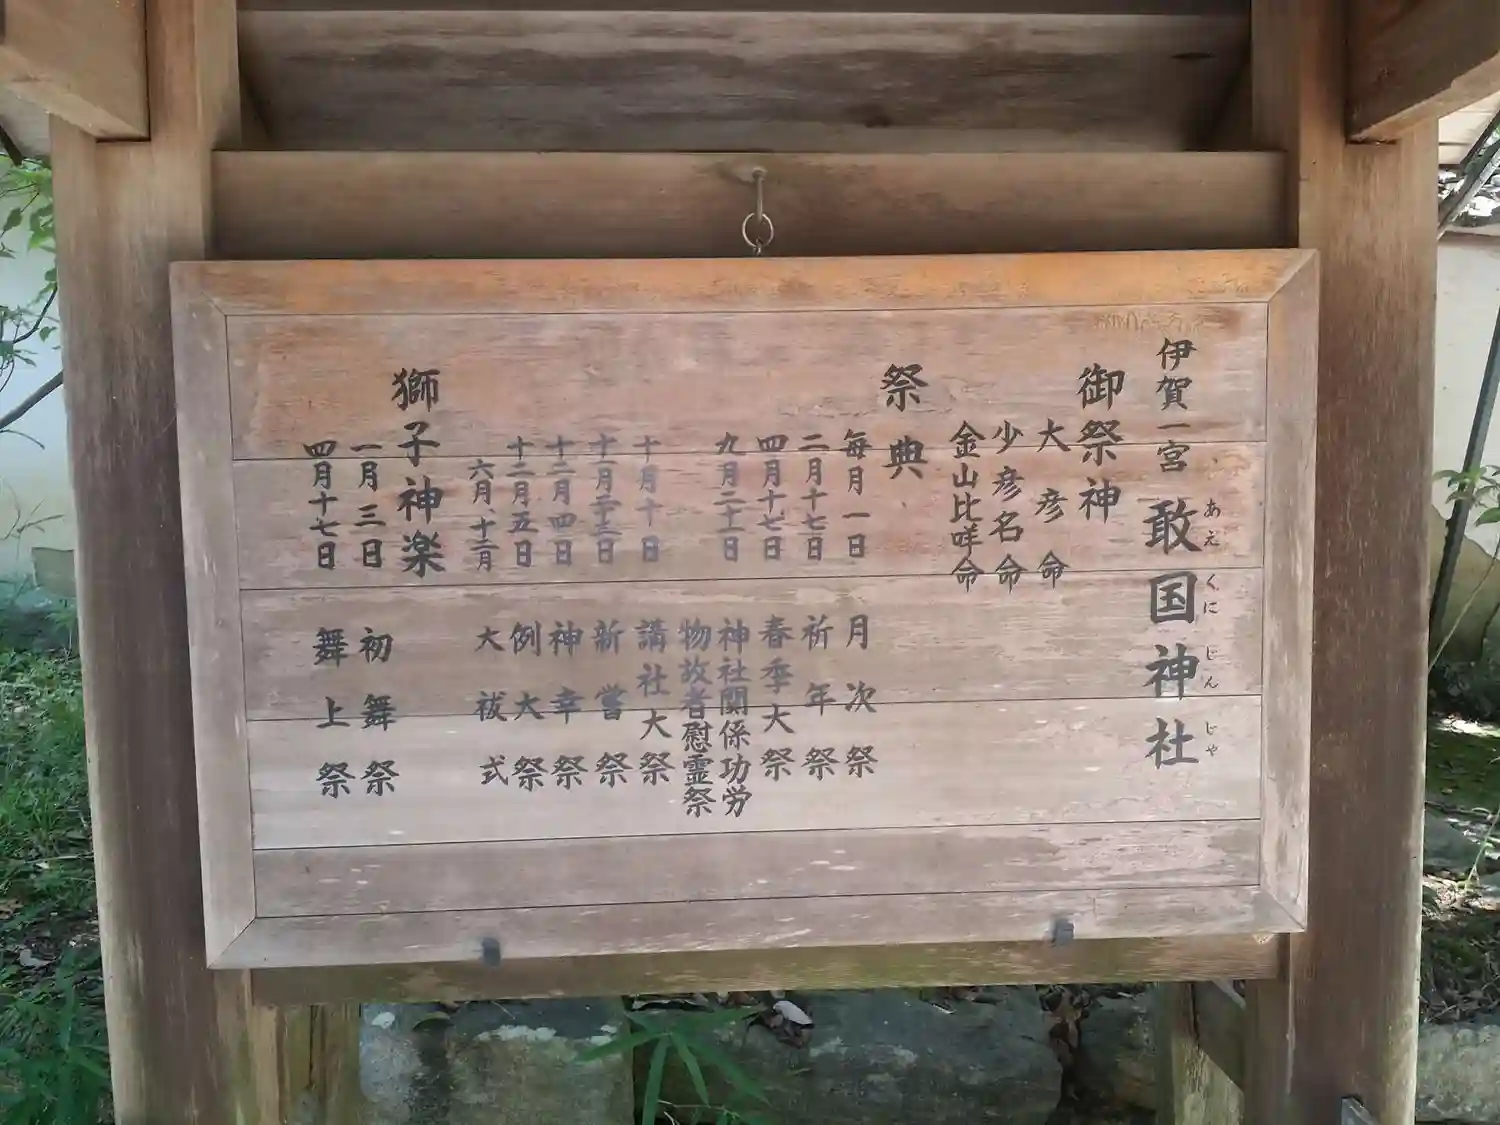 伊賀一宮 敢国神社
あえくにじんじゃ
御祭神
大彦命
少彦名命
金山比咩命
祭典
毎月一日 月次祭
二月十七日 祈年祭
四月十七日 春季大祭
九月二十日 神社関係功労
物故者慰霊祭
十月十日 講社大祭
十一月二十三日 新嘗祭
十二月四日 神幸祭
十二月五日 例大祭
六月、十二月 大祓式
獅子神楽
一月三日 初舞祭
四月十七日 舞上祭